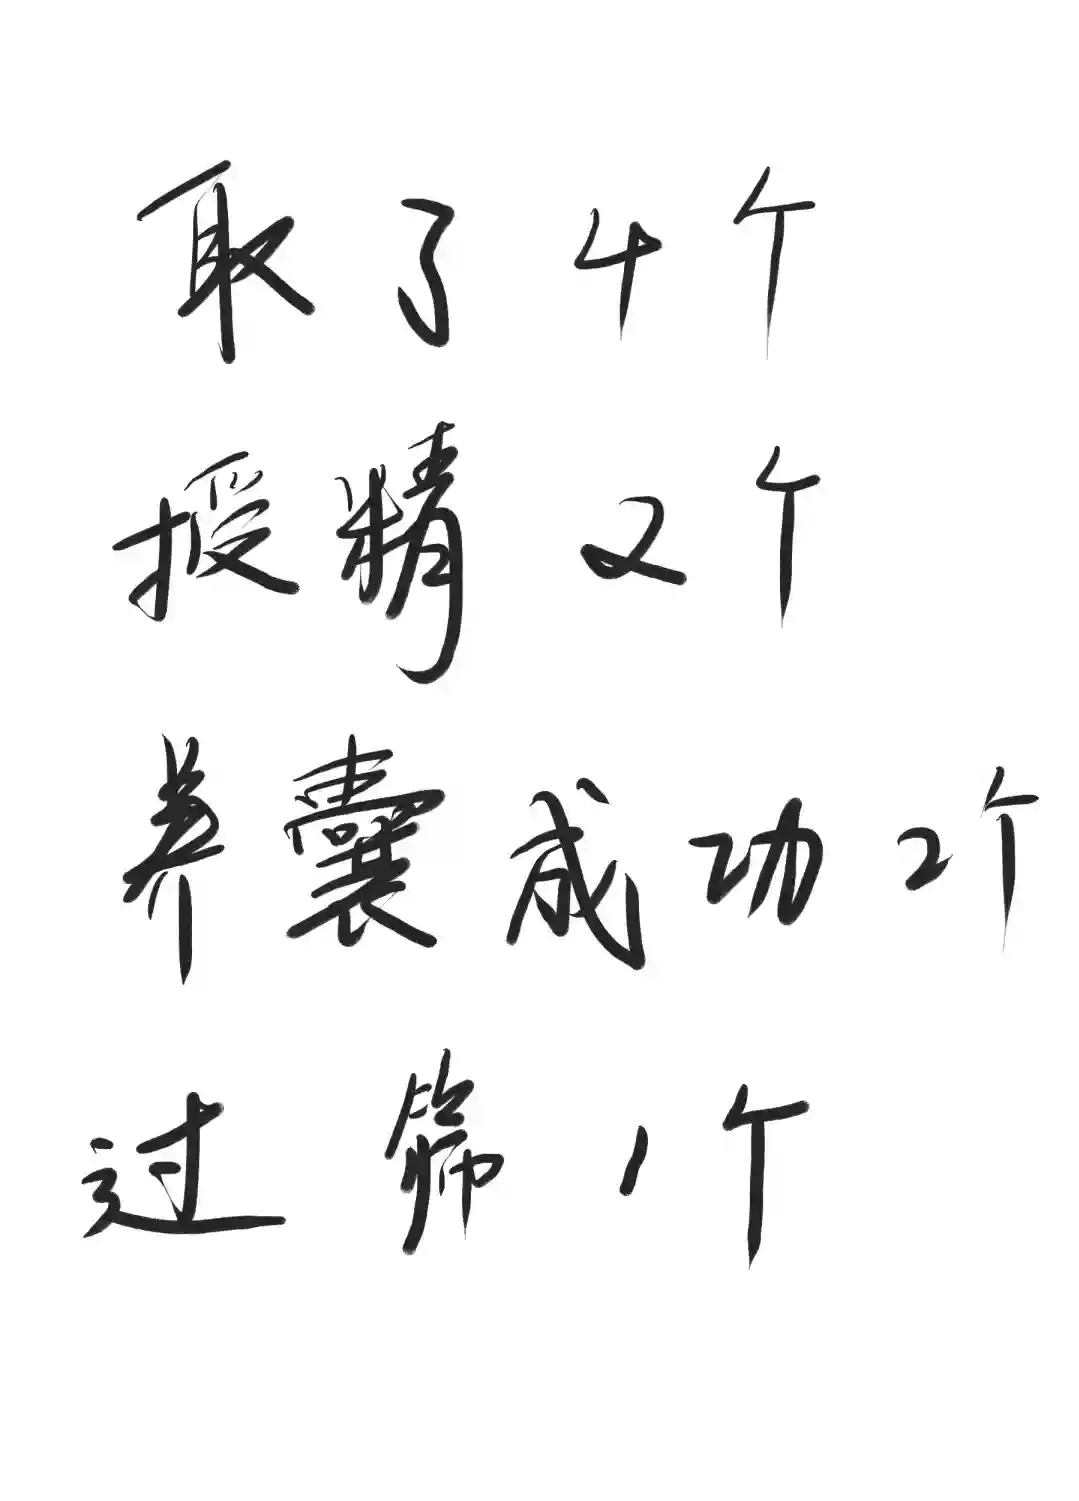 取了4个
授精2个
养囊成功2个
过筛1个